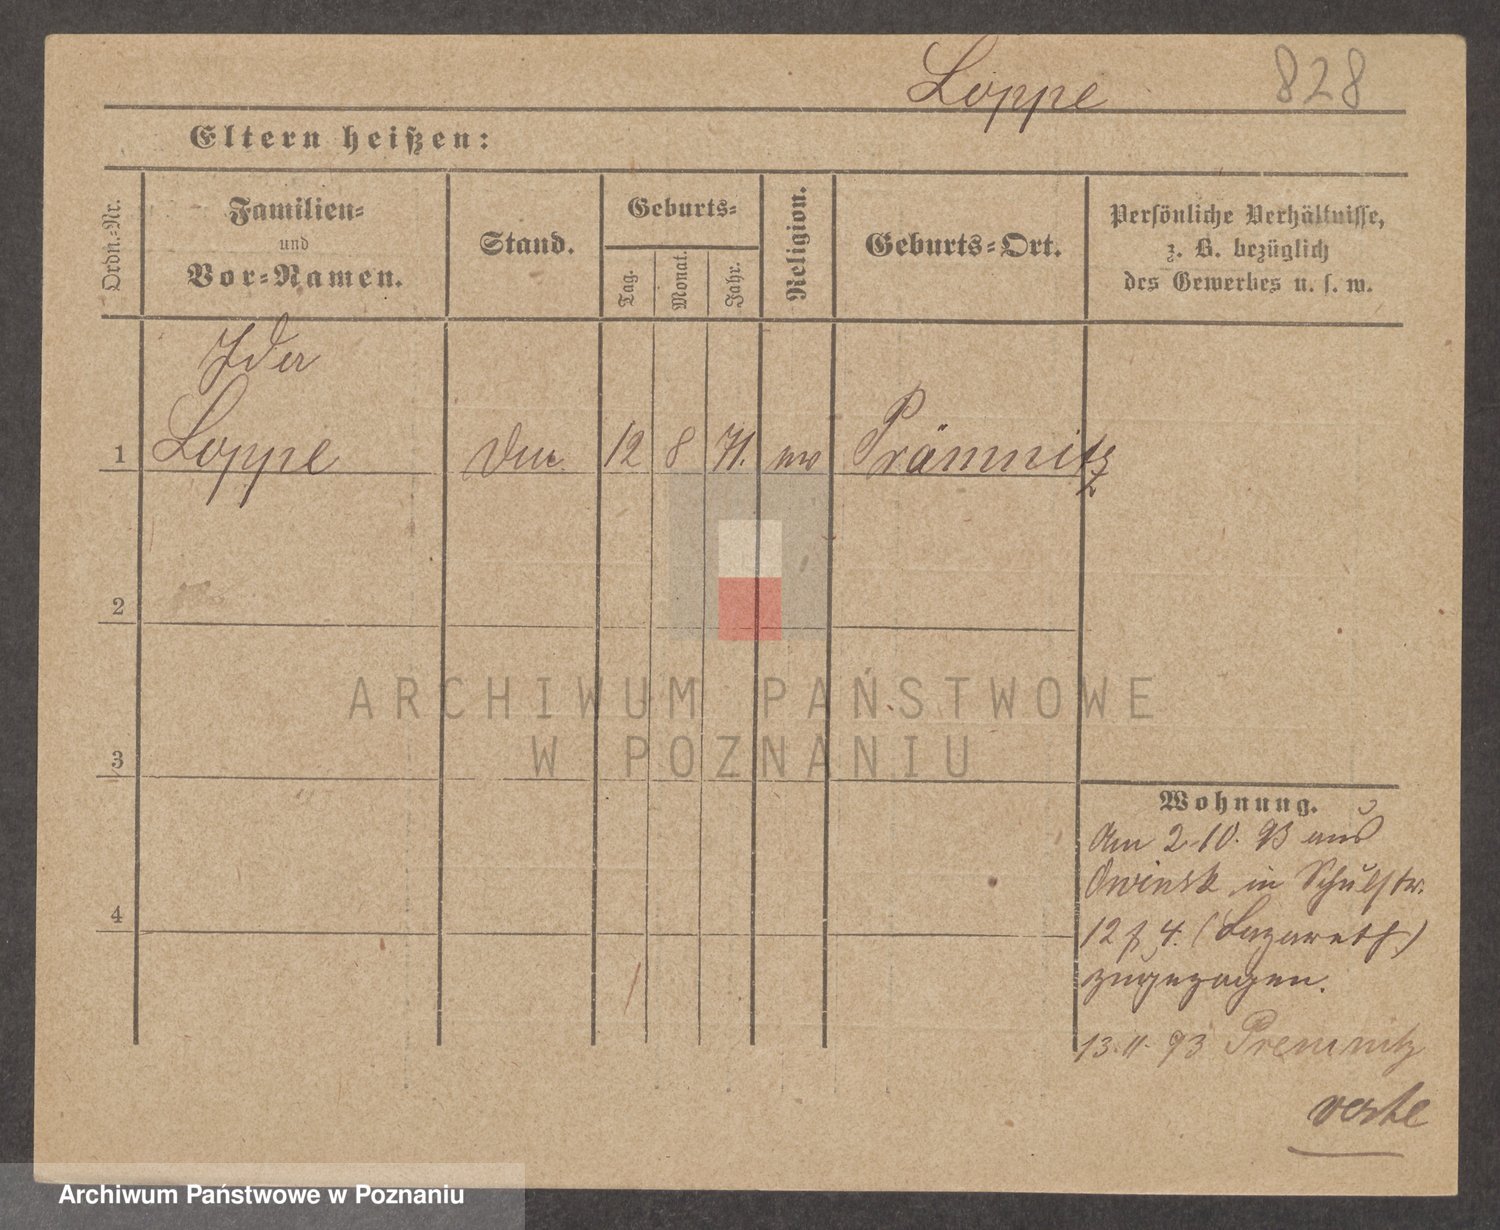 Loppe 828
Eltern heißen:
Ordn.-Nr.
Familien-
und
Vor-Namen.
Stand.
Geburts-
Tag.
Monat.
Jahr.
Religion.
Geburts-Ort.
Persönliche Verhältnisse,
z. B. bezüglich
des Gewerbes u. s. w.
Ida
1 Loppe 12 8 71. ev Prämnitz
2
3
4
ARCHIWUM PAŃSTWOWE
W POZNANIU
Wohnung.
Am 2.10.93 aus
Owinsk in Schulstr.
12 4. (Lazareth)
zugezogen.
13.11.93 Premnitz
verte
Archiwum Państwowe w Poznaniu